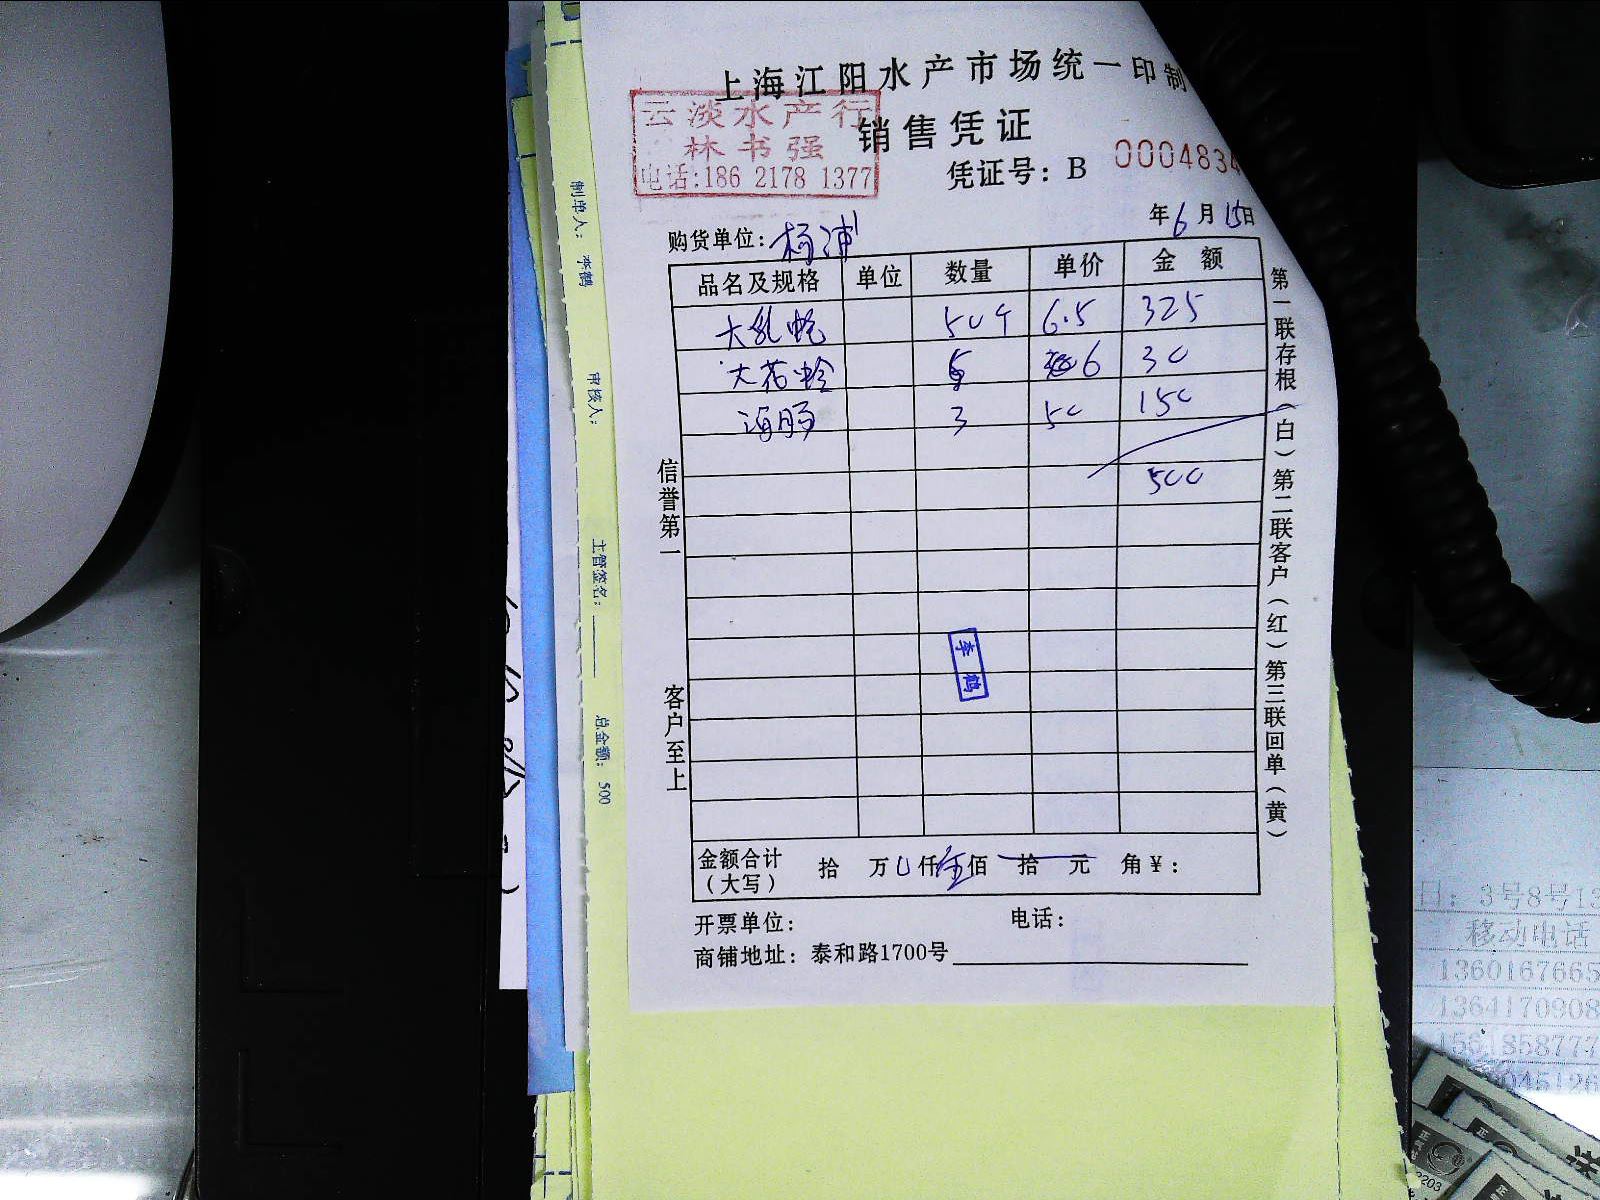 上海江阳水产市场统一印制
云淡水产行
林书强
电话:186 2178 1377
销售凭证
凭证号:B 0004834
年6月15日
购货单位:杨浦
品名及规格 单位 数量 单价 金额
50个 6.5 325
大花蛤 5 6 30
海肠 3 50 150
500
信誉第一
客户至上
李鹤
第一联存根(白)第二联客户(红)第三联回单(黄)
金额合计(大写) 拾 万 仟 伍佰 拾 元 角¥:
开票单位: 电话:
商铺地址:泰和路1700号
制单人: 李鹤
审核人:
主管签名:
总金额: 500
日:3号8号13
移动电话
1360167665
1364170908